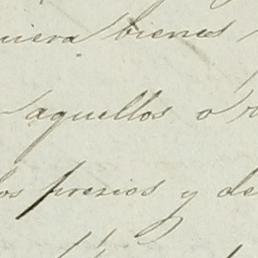 uiera bienes
aquellos o
los prezios y de